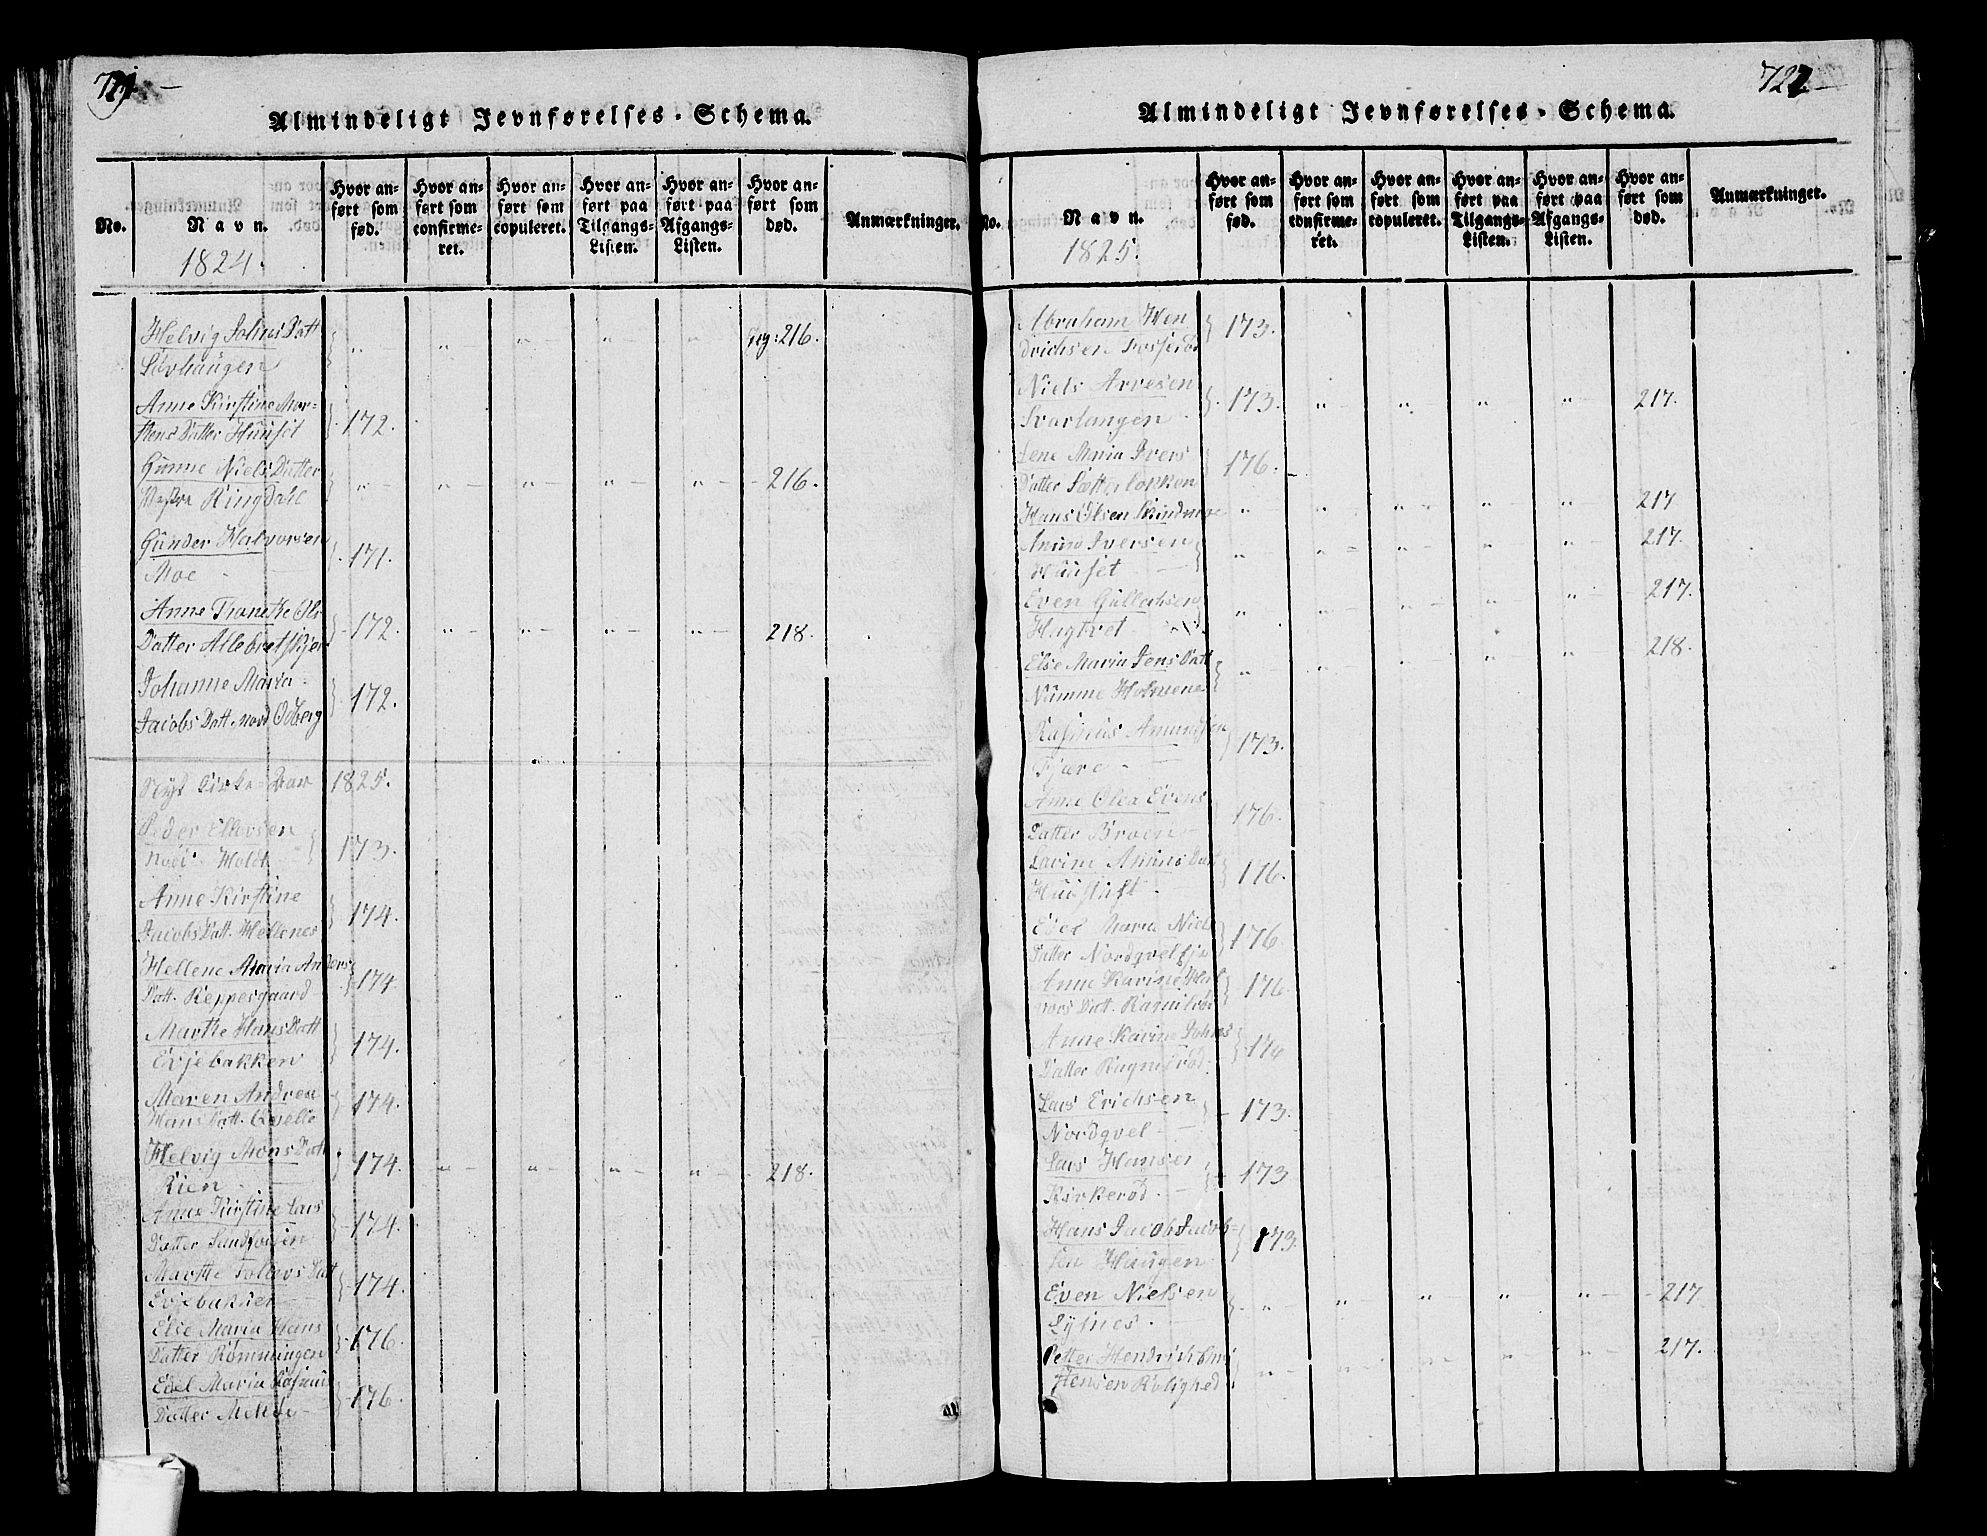 Almindeligt Jevnførelses-Schema.
No.
Navn.
Hvor anført som fød.
Hvor anført som confirmeret.
Hvor anført som copuleret.
Hvor anført paa Tilgangs-Listen.
Hvor anført paa Afgangs-Listen.
Hvor anført som død.
Anmærkninger.
1824.
Helvig Johns Datt
pag: 216.
Anne Kirstine Mor-
tens Datter Huuset 172.
Gunne Niels Datter
Vestre Ringdahl 216.
Gunder Halvorsen
Moe 171.
Anne Thonette Ols
Datter 172. 218.
Johanne Maria
Jacobs Datt. Nord Odberg 172.
Nyt Kirke-Aar 1825.
Peder Ellevsen
Holdt 173.
Anne Kirstine
Jacobs Datt. Hellenes 174.
Hellene Maria Anders
Datt. Reppesgaard 174
Marthe Hans Datt
Evjebakken 174.
Maren Andrea
Hans Datt. Qvelle 174.
Helvig Mons Datt
Rien 174. 218.
Anne Kirstine Lars
Datter 174.
Marthe Tollevs Datt
Evjebakken 174.
Else Maria Hans
Datter Rømmingen 176.
Edel Maria Rasmus
Datter 176.
722
Almindeligt Jevnførelses-Schema.
No.
Navn.
Hvor anført som fød.
Hvor anført som confirmeret.
Hvor anført som copuleret.
Hvor anført paa Tilgangs-Listen.
Hvor anført paa Afgangs-Listen.
Hvor anført som død.
Anmærkninger.
1825.
Abraham Hen
drichsen Fosserød 173.
Niels Arvesen
Svartangen 173. 217.
Lene Maria Ivers
Datter 176.
Hans Olsen 217
Iversen
Huuset 217.
Even Gullachsen
Hagtvet 217.
Else Maria Jens Datt
Numme Holmene 218.
Rasmus Amundsen
Fjære 173.
Anne Olea Evens
Datter Broen 176.
Datt
176.
Edel Maria Niels
Datter 176
Anne Karine Hal
vors Datt. Ragnilrød 176
Anne Karine Johns
Datter Ragnilrød 176
Lars Erichsen
Nordqvel 173.
Lars Hansen
Kirkerød 173
Hans Jacob Jacob-
sen Haugen 173.
Even Nielsen
217
Petter Hendrich
Rolighed 217.